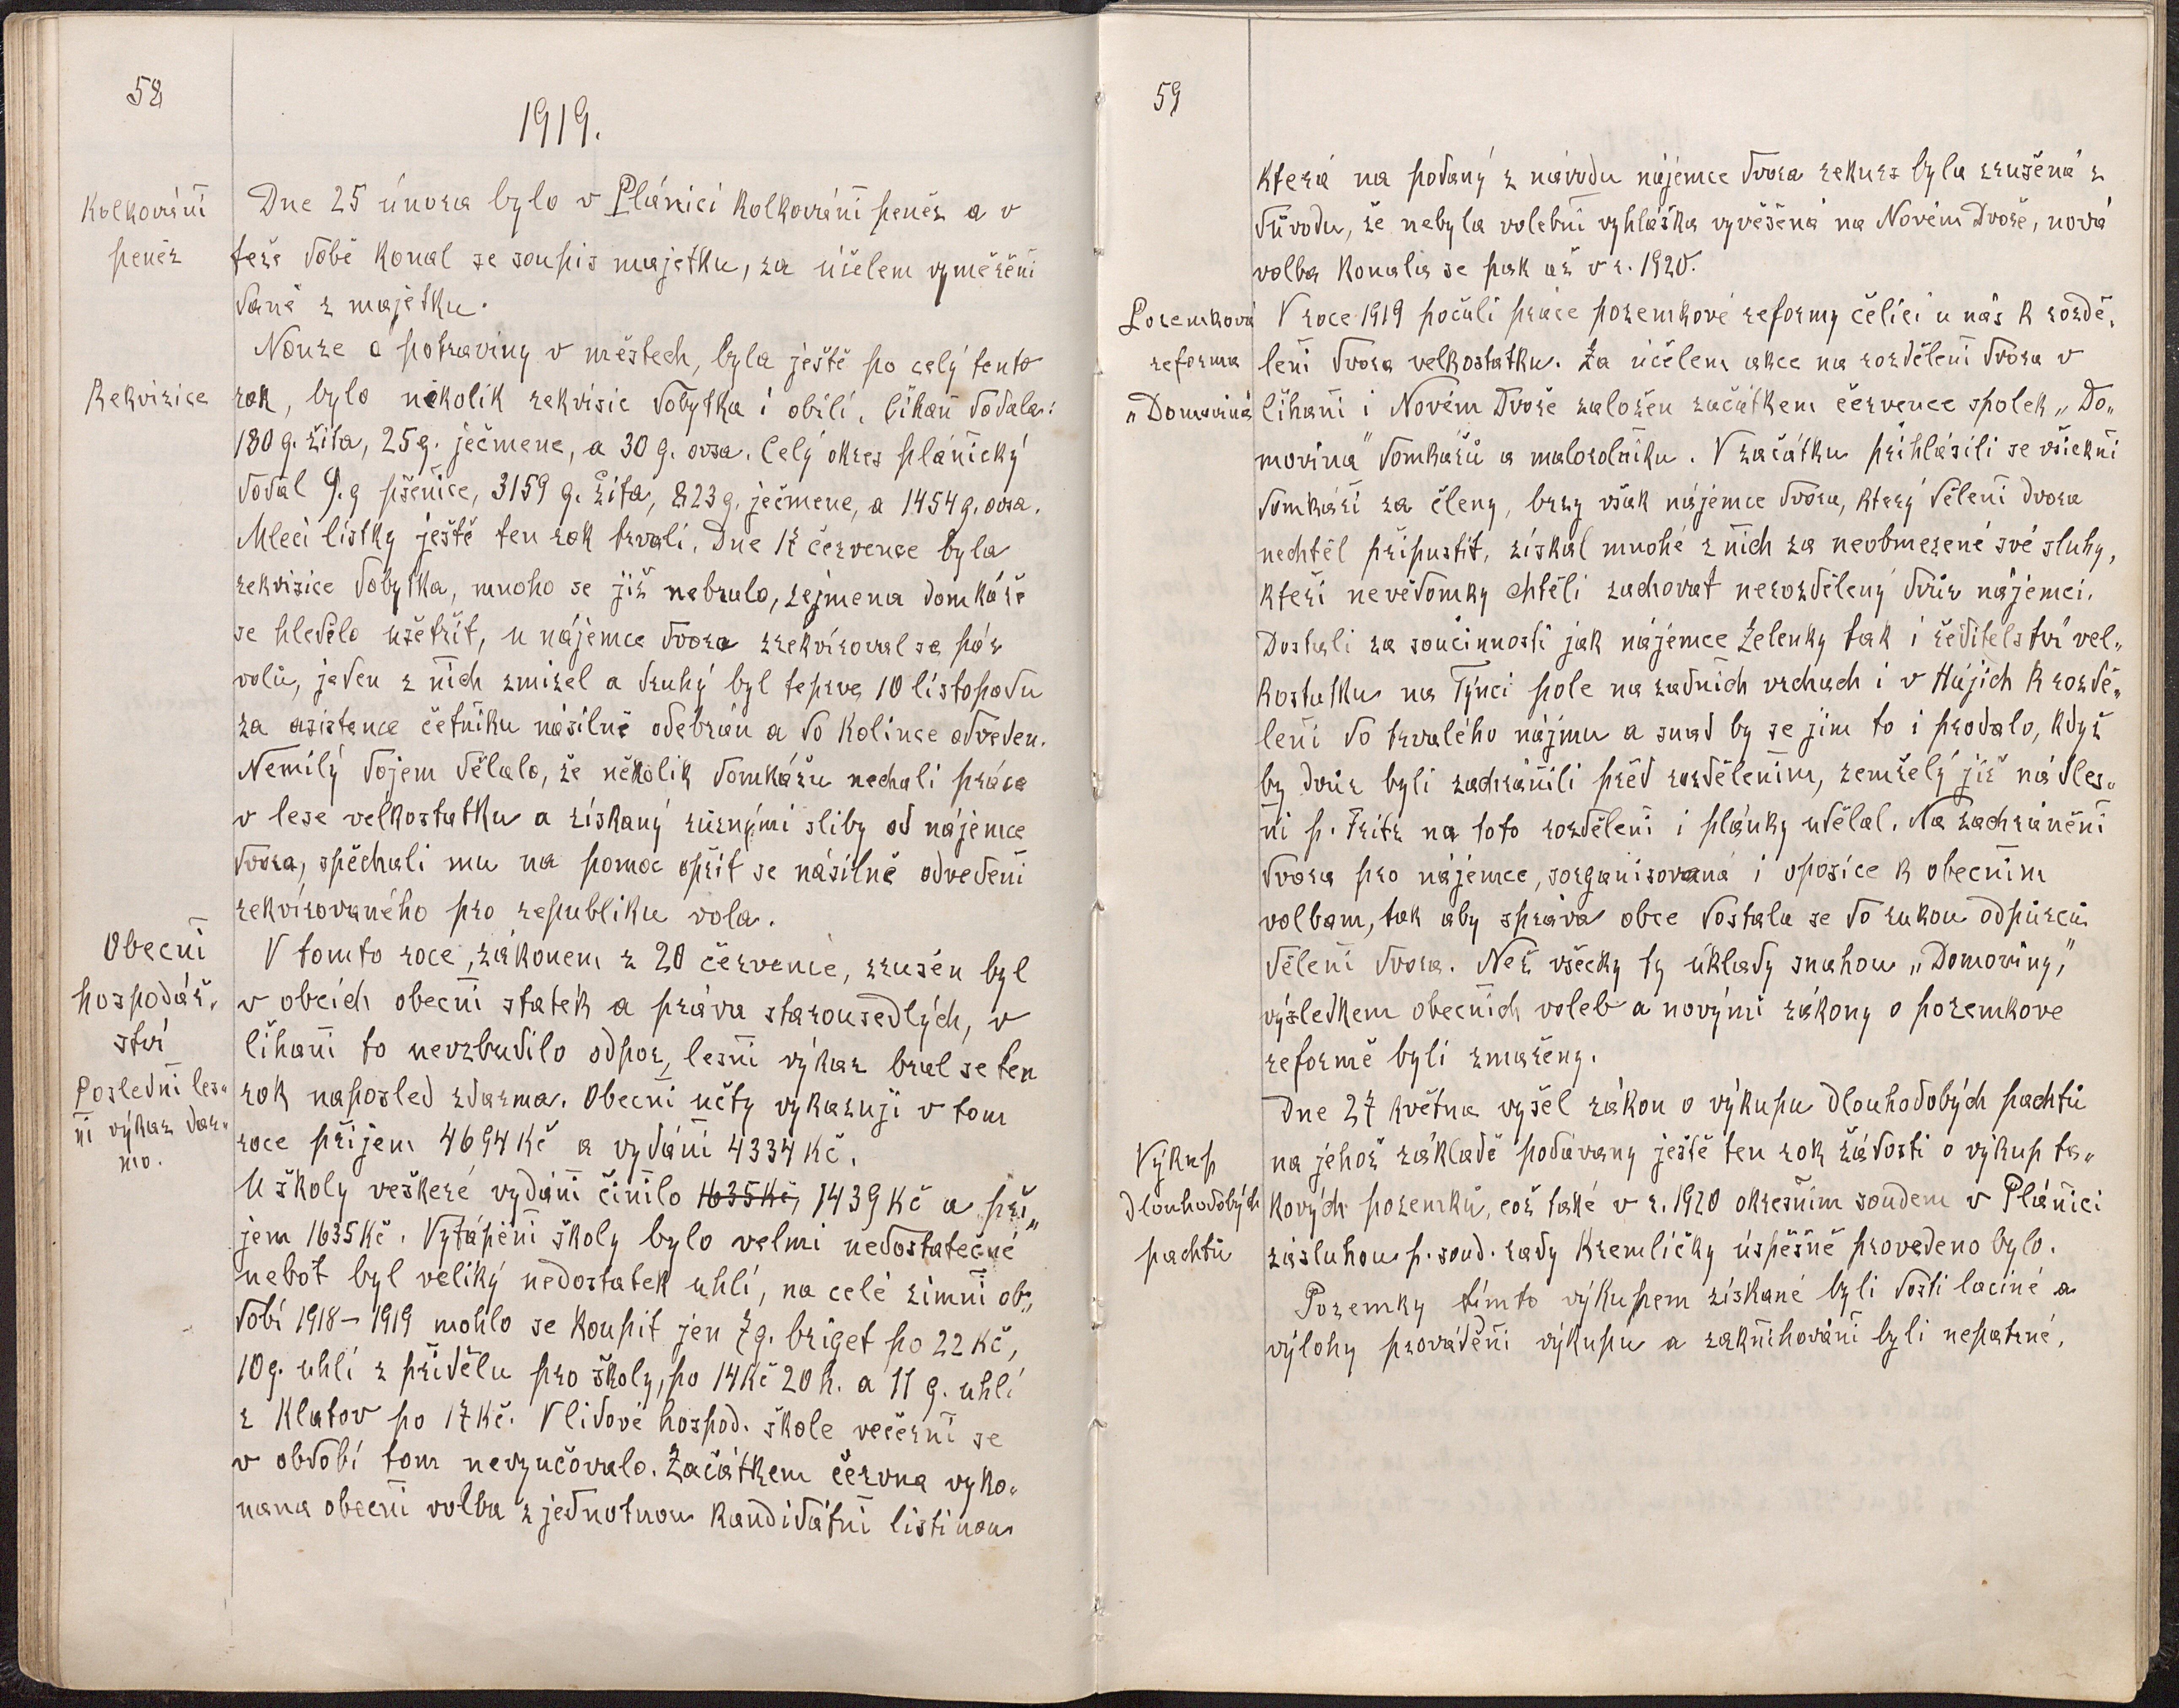 58
1919.
Kolkování
peněz
Dne 25 února bylo v Plánici kolkování peněz a v
teže době konal se soupis majetku, za účelem vyměření
daně z majetku.
Nouze o potraviny v městech, byla ještě po celý tento
Rekvizice
rok, bylo několik rekvisic dobytka i obilí. Číhaň dodala:
180 q. žita, 25 q. ječmene, a 30 q. ovsa. Celý okres plánický
dodal 9. q pšenice, 3159 q. žita, 823 q. ječmene, a 1454 q. ovsa.
Mlecí lístky ještě ten rok trvali. Dne 17 července byla
rekvisice dobytka, mnoho se již nebralo, zejmena domkáře
se hledělo ušetřit, u nájemce dvora zrekvíroval se pár
volů, jeden z nich zmizel a druhý byl teprve 10 listopadu
za asistence četníku násilně odebrán a do Kolince odveden.
Nemilý dojem dělalo, že několik domkářu nechali práce
v lese velkostatku a získaný různými sliby od nájemce
dvora, spěchali mu na pomoc opřít se násilně odvedení
rekvírovaného pro republiku vola.
Obecní
hospodář-
ství
V tomto roce, zákonem z 20 července, zrušen byl
v obcích obecní statek a práva starousedlých, v
Číhani to nevzbudilo odpor, lesní výkaz bral se ten
Poslední les-
ní výkaz dar-
mo.
rok naposled zdarma. Obecní učty vykazují v tom
roce příjem 4694 Kč a vydání 4334 Kč.
U školy veškeré vydání činilo 1635 Kč, 1439 Kč a pří„
jem 1635 Kč. Vytápění školy bylo velmi nedostatečné
neboť byl veliký nedostatek uhlí, na celé zimní ob„
dobí 1918 – 1919 mohlo se koupit jen 7 q. briget po 22 Kč,
10 q. uhlí z přídělu pro školy, po 14 Kč 20 h. a 11 q. uhlí
z Klatov po 17 Kč. V lidové hospod. škole večerní se
v období tom nevyučovalo. Začátkem června vyko-
nana obecní volba z jednotnou kandidátní listinou
59
která na podaný z návodu nájemce dvora rekurs byla zrušená z
důvodu, že nebyla volební vyhláška vyvěšená na Novém Dvoře, nová
volba konala se pak až v r. 1920.
Pozemková
reforma
„Domovina
V roce 1919 počali práce pozemkové reformy čelící u nás k rozdě-
lení dvora velkostatku. Za účelem akce na rozdělení dvora v
Číhani i Novém Dvoře založen začátkem července spolek „Do„
movina" domkářů a malorolníku. V začátku přihlásili se všickni
domkáři za členy, brzy však nájemce dvora, který dělení dvora
nechtěl připustit, získal mnohé z nich za neobmezené své sluhy,
kteří nevědomky chtěli zachovat nerozdělený dvůr nájemci.
Dostali za součinnosti jak nájemce Zelenky tak i ředitelství vel„
kostatku na Týnci pole na zadních vrchach i v Hájích k rozdě„
lení do trvalého nájmu a snad by se jim to i prodalo, když
by dvůr byli zachránili před rozdělením, zemřelý již nádles„
ní p. Fritz na toto rozdělení i plánky udělal. Na zachránění
dvora pro nájemce, zorganisovaná i oposice k obecním
volbam, tak aby správa obce dostala se do rukou odpůrců
dělení dvora. Než všecky ty úklady snahou „Domoviny,"
výsledkem obecních voleb a novými zákony o pozemkove
reformě byli zmařeny.
Dne 27 května vyšel zákon o výkupu dlouhodobých pachtů
Výkup
dlouhodobých
pachtů
na jehož základě podávany ještě ten rok žádosti o výkup ta„
kových pozemků, což také v r. 1920 okresním soudem v Plánici
zásluhou p. soud. rady Kremličky úspěšně provedeno bylo.
Pozemky tímto výkupem získané byli dosti laciné a
výlohy provádění výkupu a zaknihování byli nepatrné.